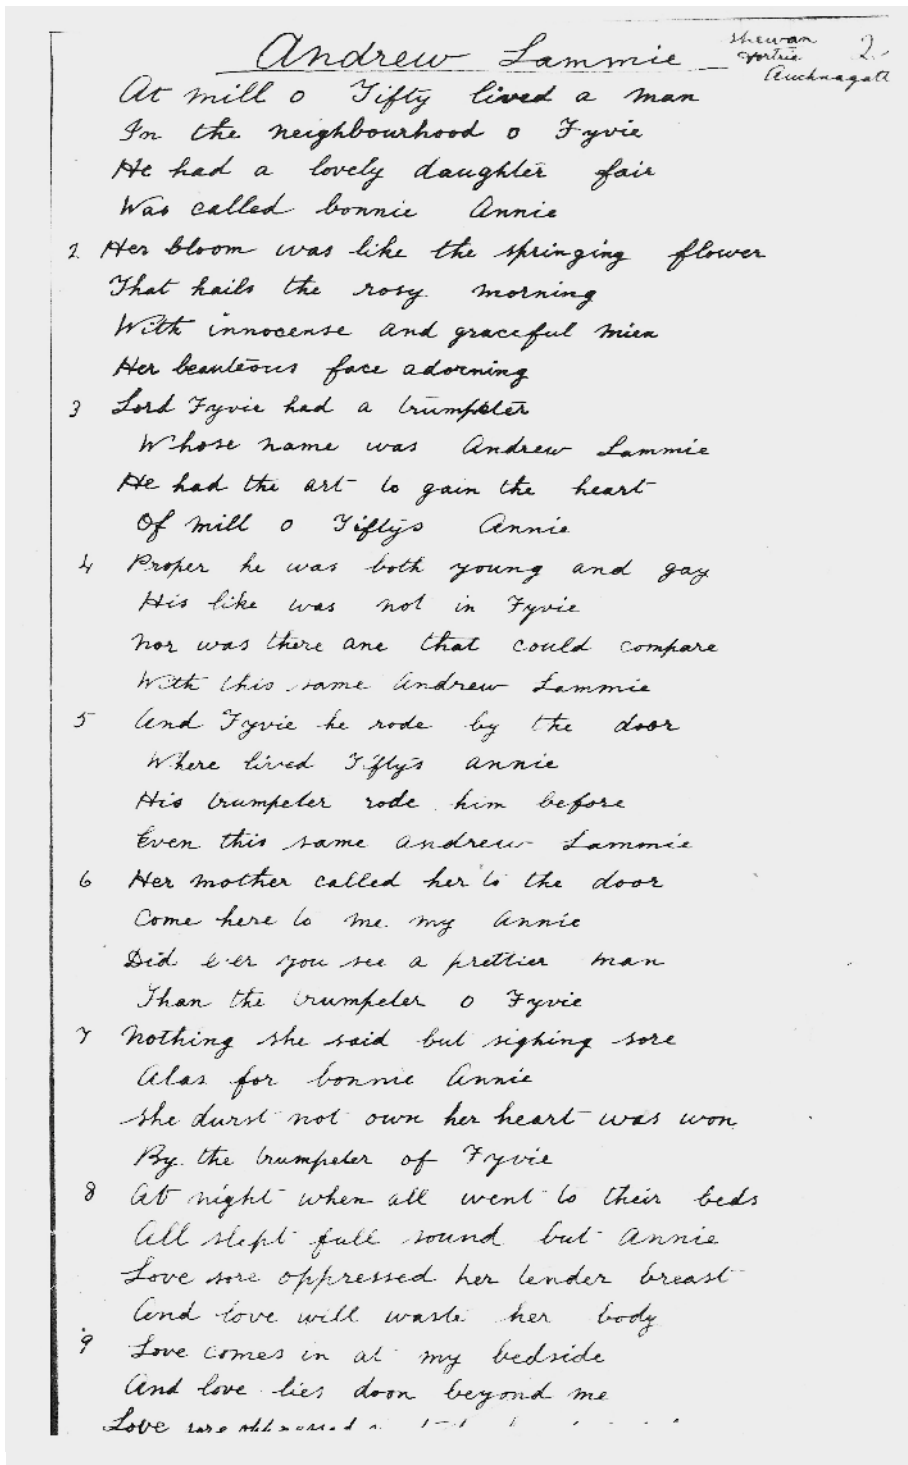 Andrew Lammie
Shewan
2.
Auchnagatt
At mill o Tifty lived a man
In the neighbourhood o Fyvie
He had a lovely daughter fair
Was called bonnie Annie
2. Her bloom was like the springing flower
That hails the rosy morning
With innocense and graceful mien
Her beauteous face adorning
3 Lord Fyvie had a trumpeter
Whose name was Andrew Lammie
He had the art to gain the heart
Of mill o Tiftys Annie
4 Proper he was both young and gay
His like was not in Fyvie
Nor was there ane that could compare
With this same Andrew Lammie
5 And Fyvie he rode by the door
Where lived Tiftys Annie
His trumpeter rode him before
Even this same Andrew Lammie
6 Her mother called her to the door
Come here to me my Annie
Did e'er you see a prettier man
Than the trumpeter o Fyvie
7 Nothing she said but sighing sore
Alas for bonnie Annie
She durst not own her heart was won
By the trumpeter of Fyvie
8 At night when all went to their beds
All slept full sound but Annie
Love sore oppressed her tender breast
And love will waste her body
9 Love comes in at my bedside
And love lies doon beyond me
Love